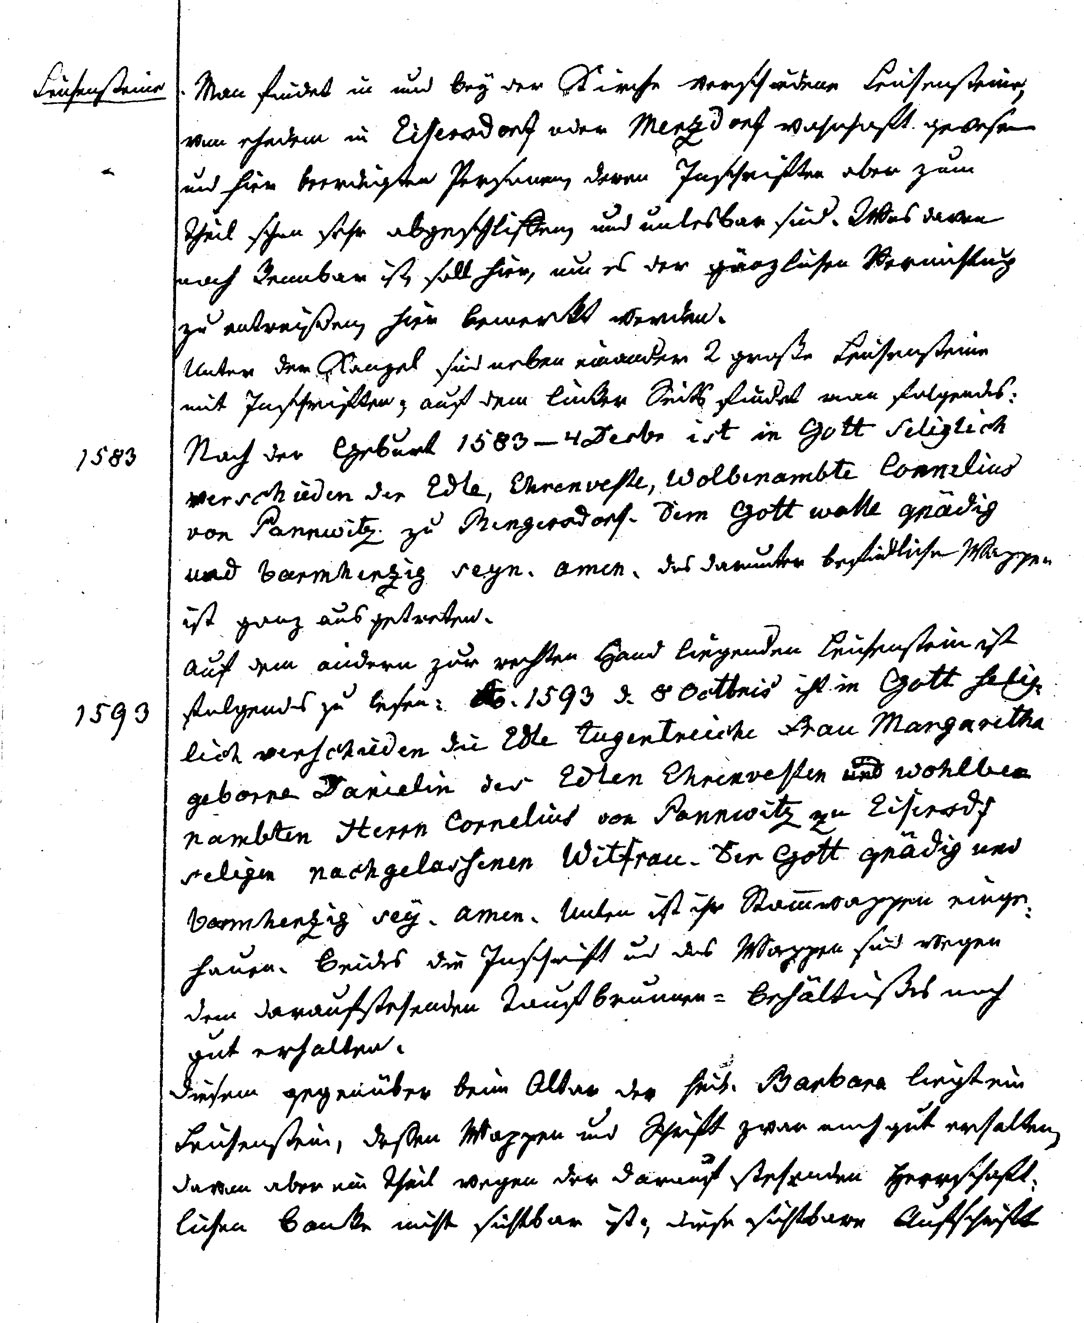 Leichensteine
Man findet in und bey der Kirche verschiedene Leichensteine,
von ehedem in Eisersdorf oder Mertzdorf wohnhaft gewesen
und hier beerdigten Personen, deren Inschriften aber zum
Theil schon sehr abgeschliffen, und unlesbar sind. Was davon
noch kennbar ist, soll hier, um es der gänzlichen Vernichtung
zu entreißen, hier bemerkt werden.
Unter der Kanzel sind neben einander 2 große Leichensteine
mit Inschriften; auf dem linker Seits findet man folgendes:
1583
Nach der Geburt 1583 – 4 Decbr ist in Gott seliglich
verschieden der Edle, Ehrenveste, Wolbenambte Cornelius
von Pannwitz zu Rengersdorf. Dem Gott wolle gnädig
und barmhertzig seyn. amen. das darunter befindliche Wappen
ist ganz ausgetreten.
Auf dem andern zur rechten Hand liegenden Leichenstein ist
1593
folgendes zu lesen: Ao. 1593 d. 8 Octbris ist in Gott selig-
lich verschieden die Edle tugentreiche Frau Margaretha
geborne Danielin des Edlen Ehrenvesten und wohlbe=
nambten Herrn Cornelius von Pannwitz zu Eisersdf
seligen nachgelassenen Witfrau. Der Gott gnädig und
barmhertzig seÿ. amen. Unten ist ihr Stam̄wappen einge:
hauen. Beides die Inschrift und das Wappen sind wegen
dem daraufstehenden Taufbrunnen = Behältnißes noch
gut erhalten.
Diesem gegenüber beim Altar der heil. Barbara liegt ein
Leichenstein, deßen Wappen und Schrift zwar noch gut erhalten,
davon aber ein Theil wegen der darauf stehenden Herrschaft:
lichen Banke nicht sichtbar ist, diese sichtbare Aufschrift